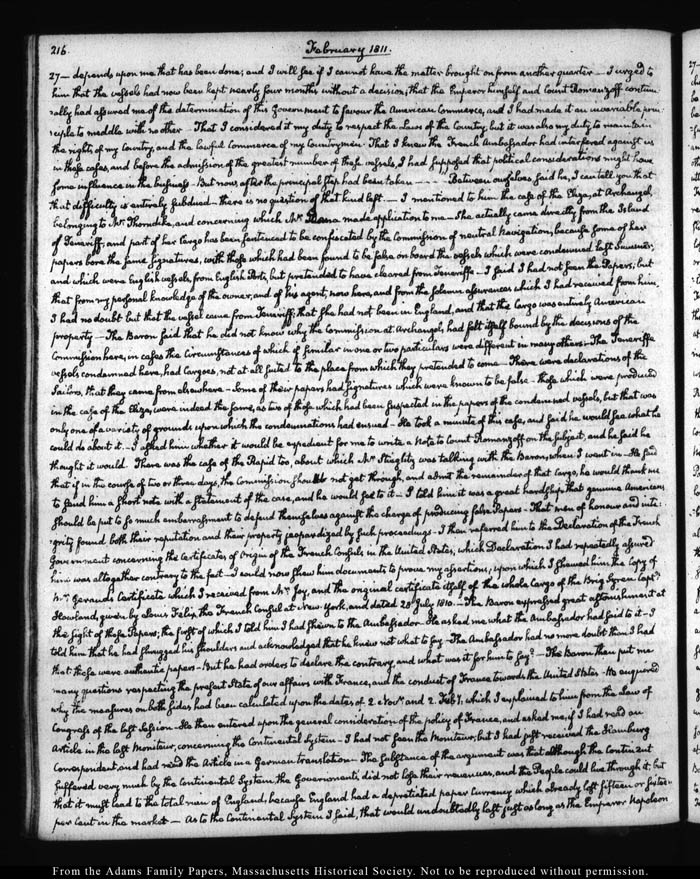 216.
February 1811.
27 — depends upon me that has been done; and I will see if I cannot have the matter brought on from another quarter — I urged to
him that the vessels had now been kept nearly four months without a decision; that the Emperor himself and Count Romanzoff continu-
ally had assured me of the determination of this Government to favour the American Commerce, and I had made it an invariable prin-
ciple to meddle with no other — That I considered it my duty to respect the Laws of the Country, but it was also my duty to maintain
the rights of my Country, and the lawful Commerce of my Countrymen. That I knew the French Ambassador had interfered against us
in these cases, and before the admission of the greatest number of these vessels, I had supposed that political considerations might have
some influence in the business. But now, after the principal step had been taken — — Between ourselves said he, I can tell you that
that difficulty is entirely subdued — there is no question of that kind left — I mentioned to him the case of the Eliza, at Archangel,
belonging to Mr. Thorndike, and concerning which Mr. made application to me — She actually came directly from the Island
of Teneriff; and part of her Cargo has been sentenced to be confiscated by the Commission of neutral Navigation, because some of her
papers bore the same signatures, with those which had been found to be false on board the vessels which were condemned last Summer,
and which were English vessels, from English Ports, but pretended to have cleared from Teneriffe — I said I had not seen the Papers; but
that from my personal knowledge of the owner, and of his agent, now here, and from the solemn assurances which I had received from him,
I had no doubt but that the vessel came from Teneriff; that she had not been in England, and that the Cargo was entirely American
property — The Baron said that he did not know why the Commission at Archangel, had felt itself bound by the decisions of the
Commission here, in cases the circumstances of which if similar in one or two particulars were different in many others — The Teneriffe
vessels condemned here, had Cargoes, not at all suited to the place from which they pretended to come — There were declarations of the
Sailors, that they came from elsewhere — Some of their papers had signatures which were known to be false — those which were produced
in the case of the Eliza, were indeed the same, as two of those which had been suspected in the papers of the condemned vessels, but that was
only one of a variety of grounds upon which the condemnations had ensued — He took a minute of this case, and said he would see what he
could do about it — I asked him whether it would be expedient for me to write a Note to Count Romanzoff on the subject, and he said he
thought it would. There was the case of the Rapid too, about which Mr. Stieglitz was talking with the Baron, when I went in — He said
that if in the course of two or three days, the Commission should not get through, and admit the remainder of that Cargo, he would thank me
to send him a short note with a Statement of the case, and he would see to it — I told him it was a great hardship, that genuine Americans
should be put to so much embarrassment to defend themselves against the charge of producing false Papers — That men of honour and inte-
grity found both their reputation and their property jeopardized by such proceedings — I then referred him to the Declaration of the French
Government concerning the Certificates of Origin of the French Consuls in the United States; which Declaration I had repeatedly assured
him was altogether contrary to the fact — I would now shew him documents to prove my assertions; upon which I shewed him the Copy of
Mr. Gerauds Certificate which I received from Mr. Joy, and the original certificate itself of the whole Cargo of the Brig Syren Captn.
Howland, given by Louis Felix, the French Consul at New-York, and dated 28 July 1810 — The Baron expressed great astonishment at
the sight of these Papers; the first of which I told him I had shewn to the Ambassador. He asked me what the Ambassador had said to it — I
told him that he had shrugged his shoulders and acknowledged that he knew not what to say — The Ambassador had no more doubt than I had
that these were authentic papers — But he had orders to declare the contrary, and what was it for him to say? — The Baron then put me
many questions respecting the present State of our affairs with France, and the conduct of France towards the United States — He enquired
why the measures on both sides had been calculated upon the dates of 2. Novr. and 2 Feby. which I explained to him from the Law of
Congress of the last Session — He then entered upon the general consideration of the policy of France, and asked me, if I had read an
Article in the last Moniteur, concerning the Continental System — I had not seen the Moniteur, but I had just received the Hamburg
Correspondent, and had read the Article in a German translation — The substance of the argument was that although the Continent
suffered very much by the Continental System, the Governments did not lose their revenues, and the People could live through it; but
that it must lead to the total ruin of England; because England had a depreciated paper Currency which already lost fifteen or sixteen
per cent in the market — As to the Continental System I said, that would undoubtedly last just as long as the Emperor Napoleon
From the Adams Family Papers, Massachusetts Historical Society. Not to be reproduced without permission.